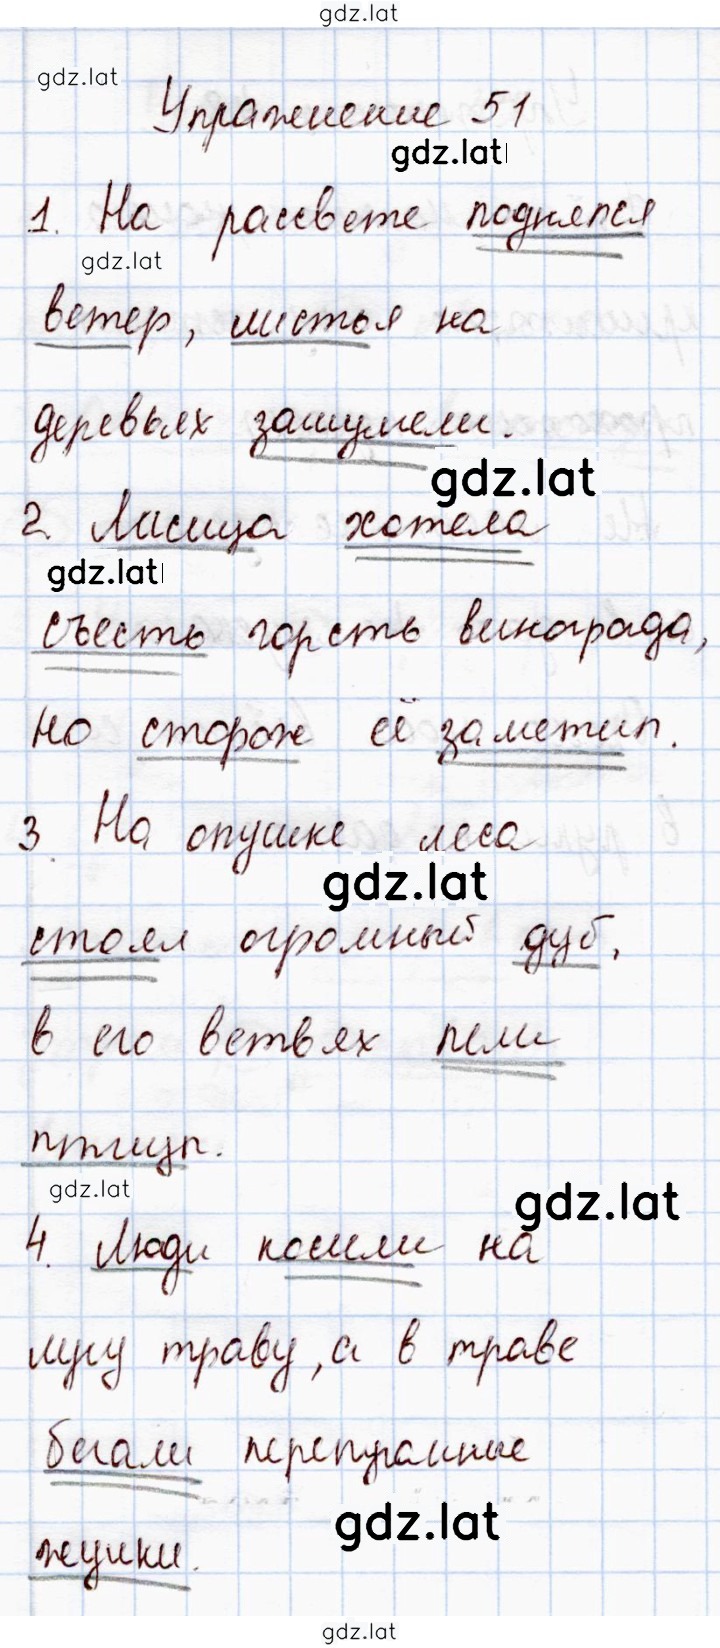 gdz.lat
gdz.lat
Упражнение 51
gdz.lat
1. На рассвете поднялся
gdz.lat
ветер, листья на
деревьях зашумели.
gdz.lat
2. Лисица хотела
gdz.lat
съесть горсть винограда,
но сторож её заметил.
3 На опушке леса
gdz.lat
стоял огромный дуб,
в его ветвях пели
птицы.
gdz.lat
gdz.lat
4. Люди косили на
лугу траву, а в траве
бегали перепуганные
gdz.lat
жуики.
gdz.lat